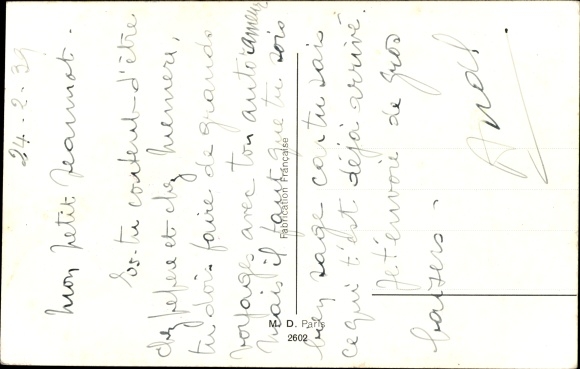 24-2-39
Mon petit Jeannot -
Es-tu content d'être
chez pépère et chez mémère,
tu dois faire de grands
voyages avec ton auto
mais il faut que tu sois
bien sage car tu sais
ce qui t'est déjà arrivé.
Je t'envoie de gros
baisers -
Fabrication Française
M. D. Paris
2602